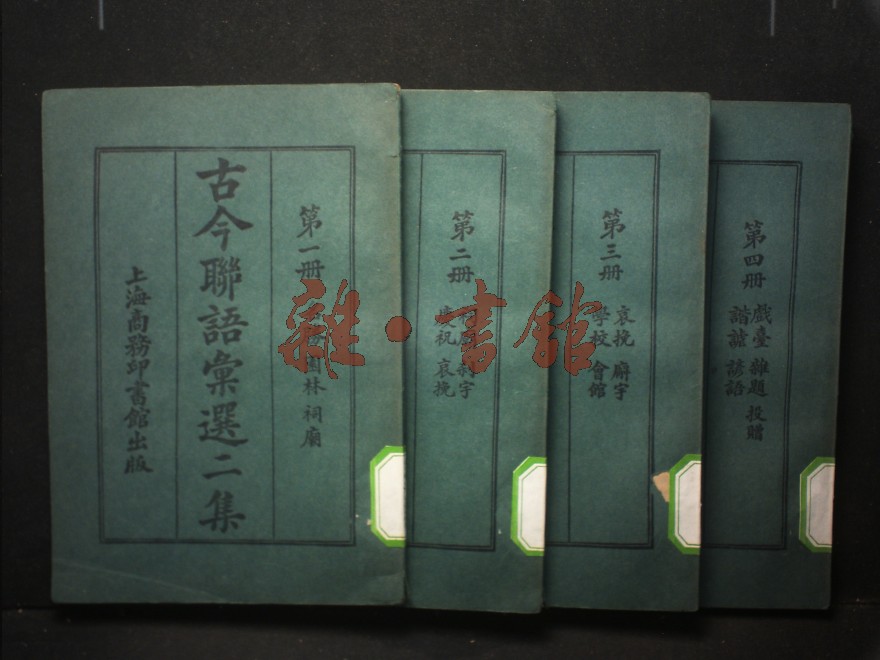 第一册
園林 祠廟
古今聯語彙選二集
上海商務印書館出版
第二册
慶祝 哀挽
第三册
哀挽 廨宇
學校 會館
第四册
戲臺 雜題 投贈
諧謔 諺語
雜·書館